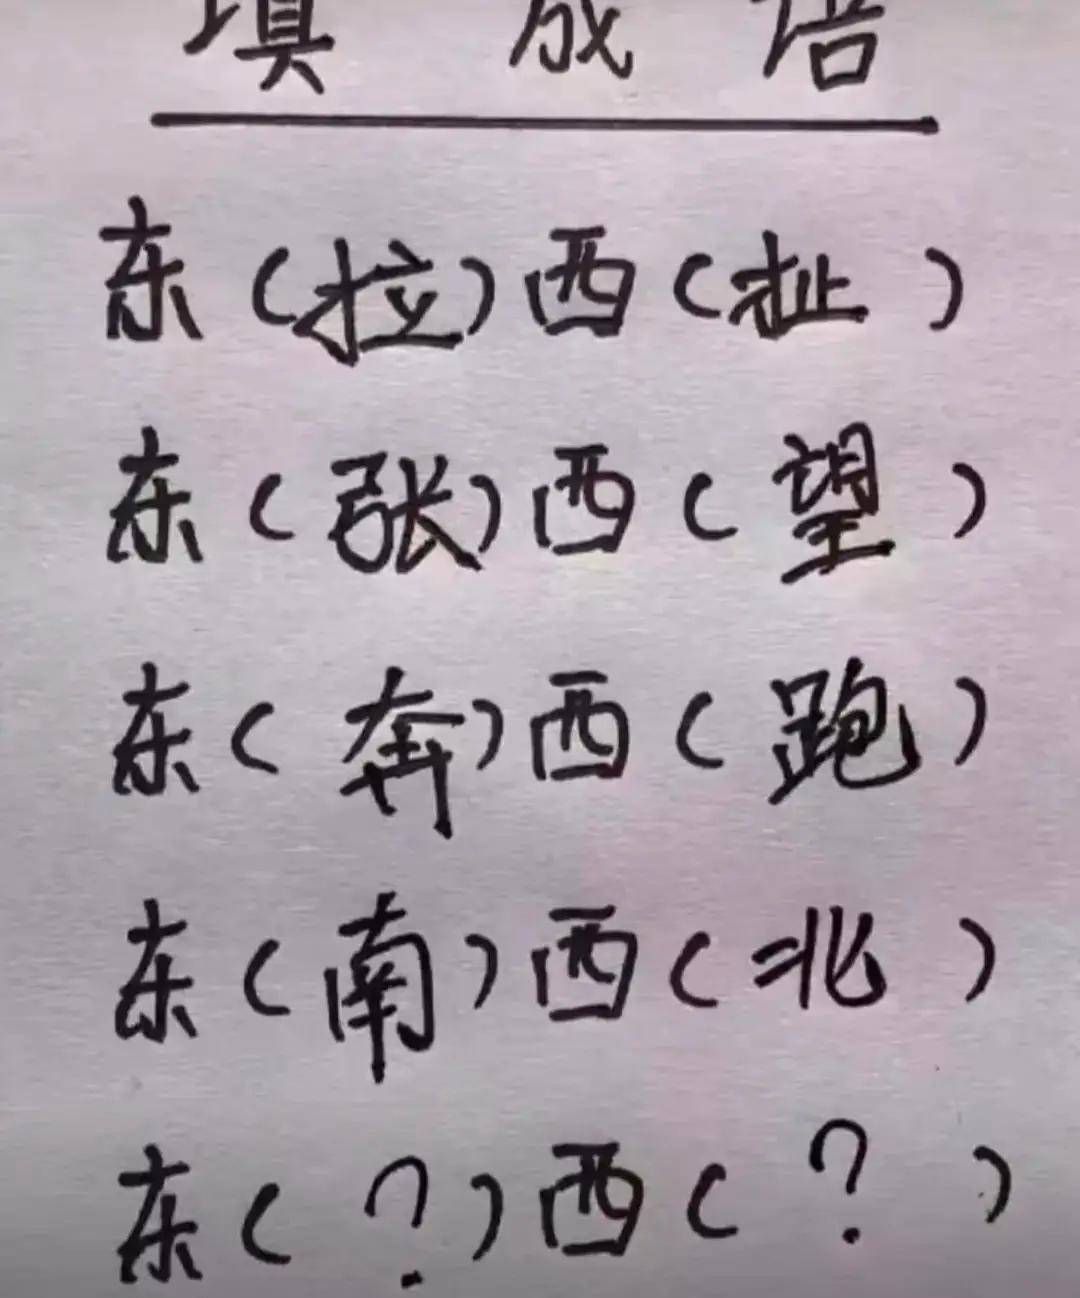 填成语
东（拉）西（扯）
东（张）西（望）
东（奔）西（跑）
东（南）西（北）
东（?）西（?）